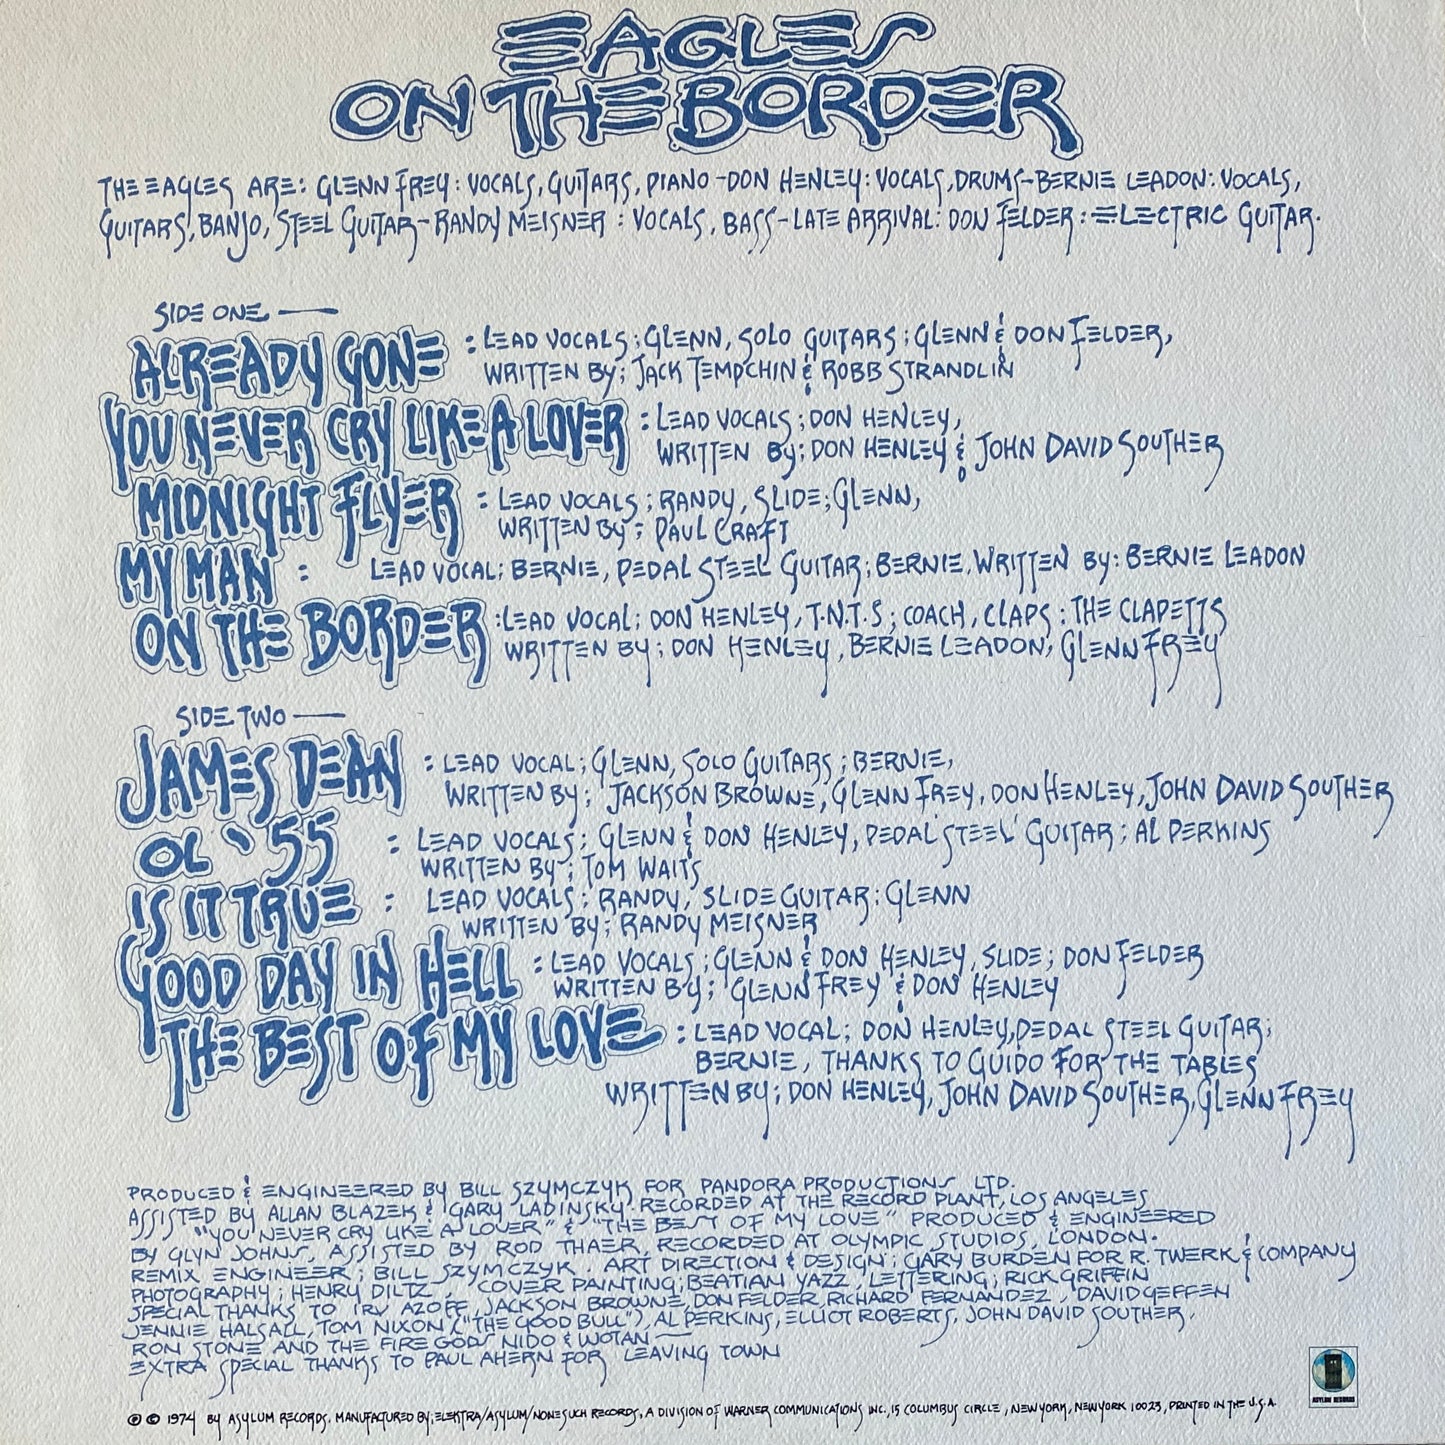 EAGLES
ON THE BORDER
THE EAGLES ARE: GLENN FREY: VOCALS, GUITARS, PIANO - DON HENLEY: VOCALS, DRUMS - BERNIE LEADON: VOCALS,
GUITARS, BANJO, STEEL GUITAR - RANDY MEISNER : VOCALS, BASS - LATE ARRIVAL: DON FELDER: ELECTRIC GUITAR.
SIDE ONE —
ALREADY GONE : LEAD VOCALS; GLENN, SOLO GUITARS; GLENN & DON FELDER,
WRITTEN BY; JACK TEMPCHIN & ROBB STRANDLIN
YOU NEVER CRY LIKE A LOVER : LEAD VOCALS; DON HENLEY,
WRITTEN BY; DON HENLEY & JOHN DAVID SOUTHER
MIDNIGHT FLYER : LEAD VOCALS; RANDY, SLIDE; GLENN,
WRITTEN BY; PAUL CRAFT
MY MAN : LEAD VOCAL; BERNIE, PEDAL STEEL GUITAR; BERNIE, WRITTEN BY: BERNIE LEADON
ON THE BORDER : LEAD VOCAL; DON HENLEY, T.N.T.S; COACH, CLAPS: THE CLAPETTS
WRITTEN BY; DON HENLEY, BERNIE LEADON, GLENN FREY
SIDE TWO —
JAMES DEAN : LEAD VOCAL; GLENN, SOLO GUITARS; BERNIE,
WRITTEN BY; JACKSON BROWNE, GLENN FREY, DON HENLEY, JOHN DAVID SOUTHER
OL '55 : LEAD VOCALS; GLENN & DON HENLEY, PEDAL STEEL GUITAR; AL PERKINS
WRITTEN BY; TOM WAITS
IS IT TRUE : LEAD VOCALS; RANDY, SLIDE GUITAR; GLENN
WRITTEN BY; RANDY MEISNER
GOOD DAY IN HELL : LEAD VOCALS; GLENN & DON HENLEY, SLIDE; DON FELDER
WRITTEN BY; GLENN FREY & DON HENLEY
THE BEST OF MY LOVE : LEAD VOCAL; DON HENLEY, PEDAL STEEL GUITAR;
BERNIE, THANKS TO GUIDO FOR THE TABLES
WRITTEN BY; DON HENLEY, JOHN DAVID SOUTHER, GLENN FREY
PRODUCED & ENGINEERED BY BILL SZYMCZYK FOR PANDORA PRODUCTIONS LTD.
ASSISTED BY ALLAN BLAZEK & GARY LADINSKY. RECORDED AT THE RECORD PLANT, LOS ANGELES
"YOU NEVER CRY LIKE A LOVER" & "THE BEST OF MY LOVE" PRODUCED & ENGINEERED
BY GLYN JOHNS, ASSISTED BY ROD THAER, RECORDED AT OLYMPIC STUDIOS, LONDON.
REMIX ENGINEER; BILL SZYMCZYK. ART DIRECTION & DESIGN; GARY BURDEN FOR R. TWERK & COMPANY
PHOTOGRAPHY; HENRY DILTZ, COVER PAINTING; BEATIAN YAZZ, LETTERING; RICK GRIFFIN
SPECIAL THANKS TO IRV AZOFF, JACKSON BROWNE, DON FELDER, RICHARD FERNANDEZ, DAVID GEFFEN
JENNIE HALSALL, TOM NIXON ("THE GOOD BULL"), AL PERKINS, ELLIOT ROBERTS, JOHN DAVID SOUTHER,
RON STONE AND THE FIRE GODS NIDO & WOTAN —
EXTRA SPECIAL THANKS TO PAUL AHERN FOR LEAVING TOWN
℗ © 1974 BY ASYLUM RECORDS. MANUFACTURED BY; ELEKTRA/ASYLUM/NONESUCH RECORDS, A DIVISION OF WARNER COMMUNICATIONS INC., 15 COLUMBUS CIRCLE, NEW YORK, NEW YORK 10023, PRINTED IN THE U.S.A.
ASYLUM RECORDS